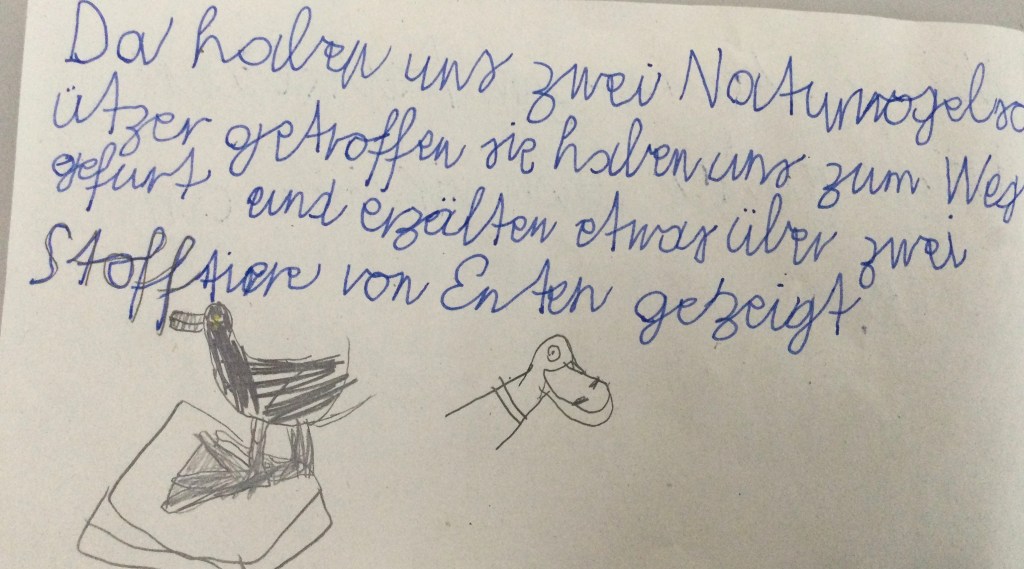 Da haben uns zwei Naturvogelsc
ützer getroffen sie haben uns zum Weg
gefürt und erzälten etwas über zwei
Stofftiere von Enten gezeigt